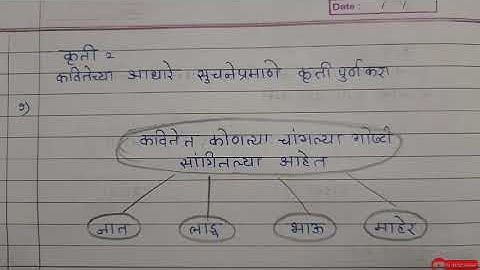 Date : / /
कृती २
कवितेच्या आधारे सुचनेप्रमाणे कृती पुर्ण करा
१)
कवितेत कोणत्या चांगल्या गोष्टी
सांगितल्या आहेत
नात
लाडू
भाऊ
माहेर